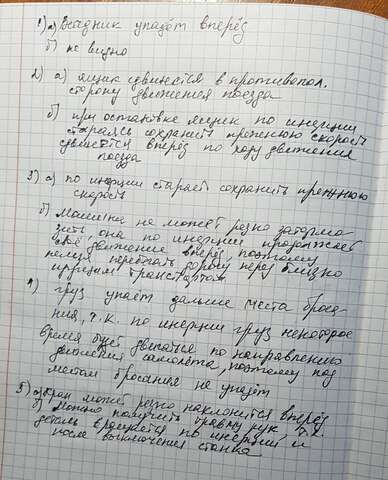 1) а) Всадник упадёт вперёд
б) не видно
2) а) ящик сдвинется в противопол.
сторону движения поезда
б) при остановке ящик по инерции
стараясь сохранить прежнюю скорость
сдвинется вперёд по ходу движения
поезда
3) а) по инерции старает сохранить прежнюю
скорость
б) Машина не может резко затормо-
зить, она по инерции продолжает
своё движение вперёд, поэтому
нельзя перебегать дорогу перед близко
идущим транспортом
4) груз упадёт дальше места броса-
ния, т.к. по инерции груз некоторое
время будет двигаться по направлению
движения самолёта, поэтому под
местом бросания не упадёт
5) а) кран может резко наклонится вперёд
б) Можно получить травму рук, т.к.
деталь вращается по инерции и
после выключения станка